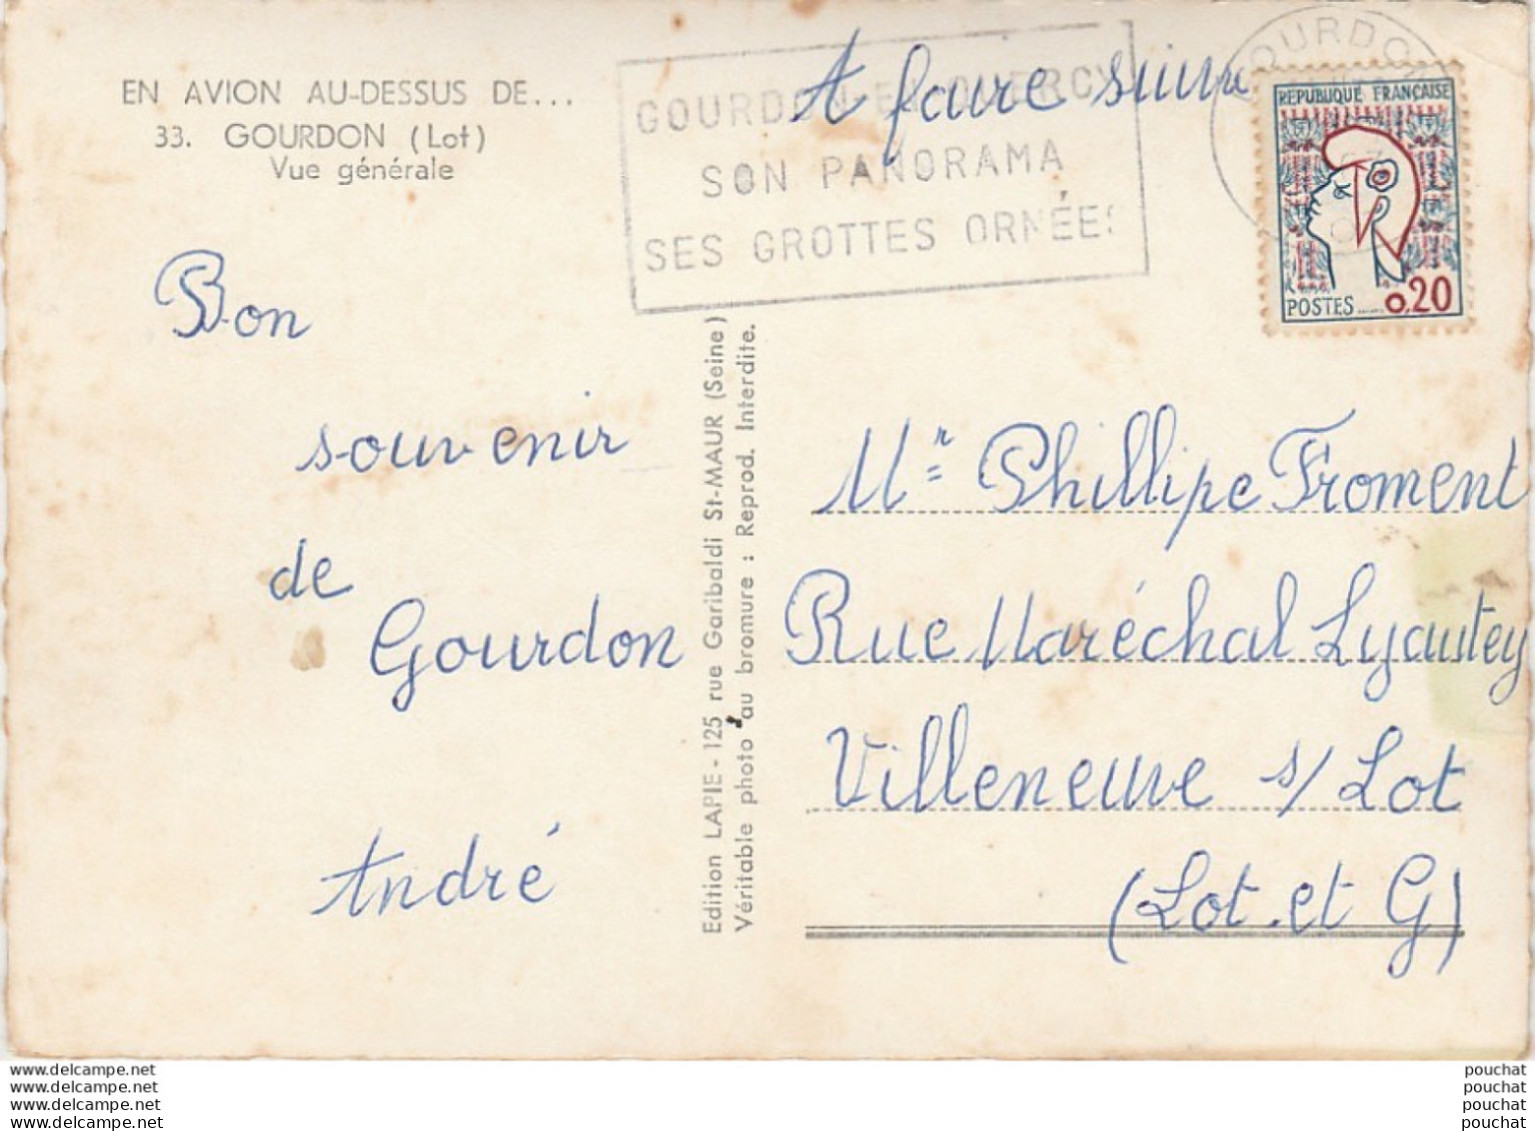 EN AVION AU-DESSUS DE...
33. GOURDON (Lot)
Vue générale
GOURDON-EN-QUERCY
SON PANORAMA
SES GROTTES ORNÉES
A faire suivre
GOURDON
RÉPUBLIQUE FRANÇAISE
POSTES 0,20
Bon
souvenir
de
Gourdon
André
Edition LAPIE - 125 rue Garibaldi St-MAUR (Seine)
Véritable photo au bromure : Reprod. Interdite.
Mr Phillipe Froment
Rue Maréchal Lyautey
Villeneuve s/ Lot
(Lot et G)
www.delcampe.net
www.delcampe.net
www.delcampe.net
www.delcampe.net
pouchat
pouchat
pouchat
pouchat